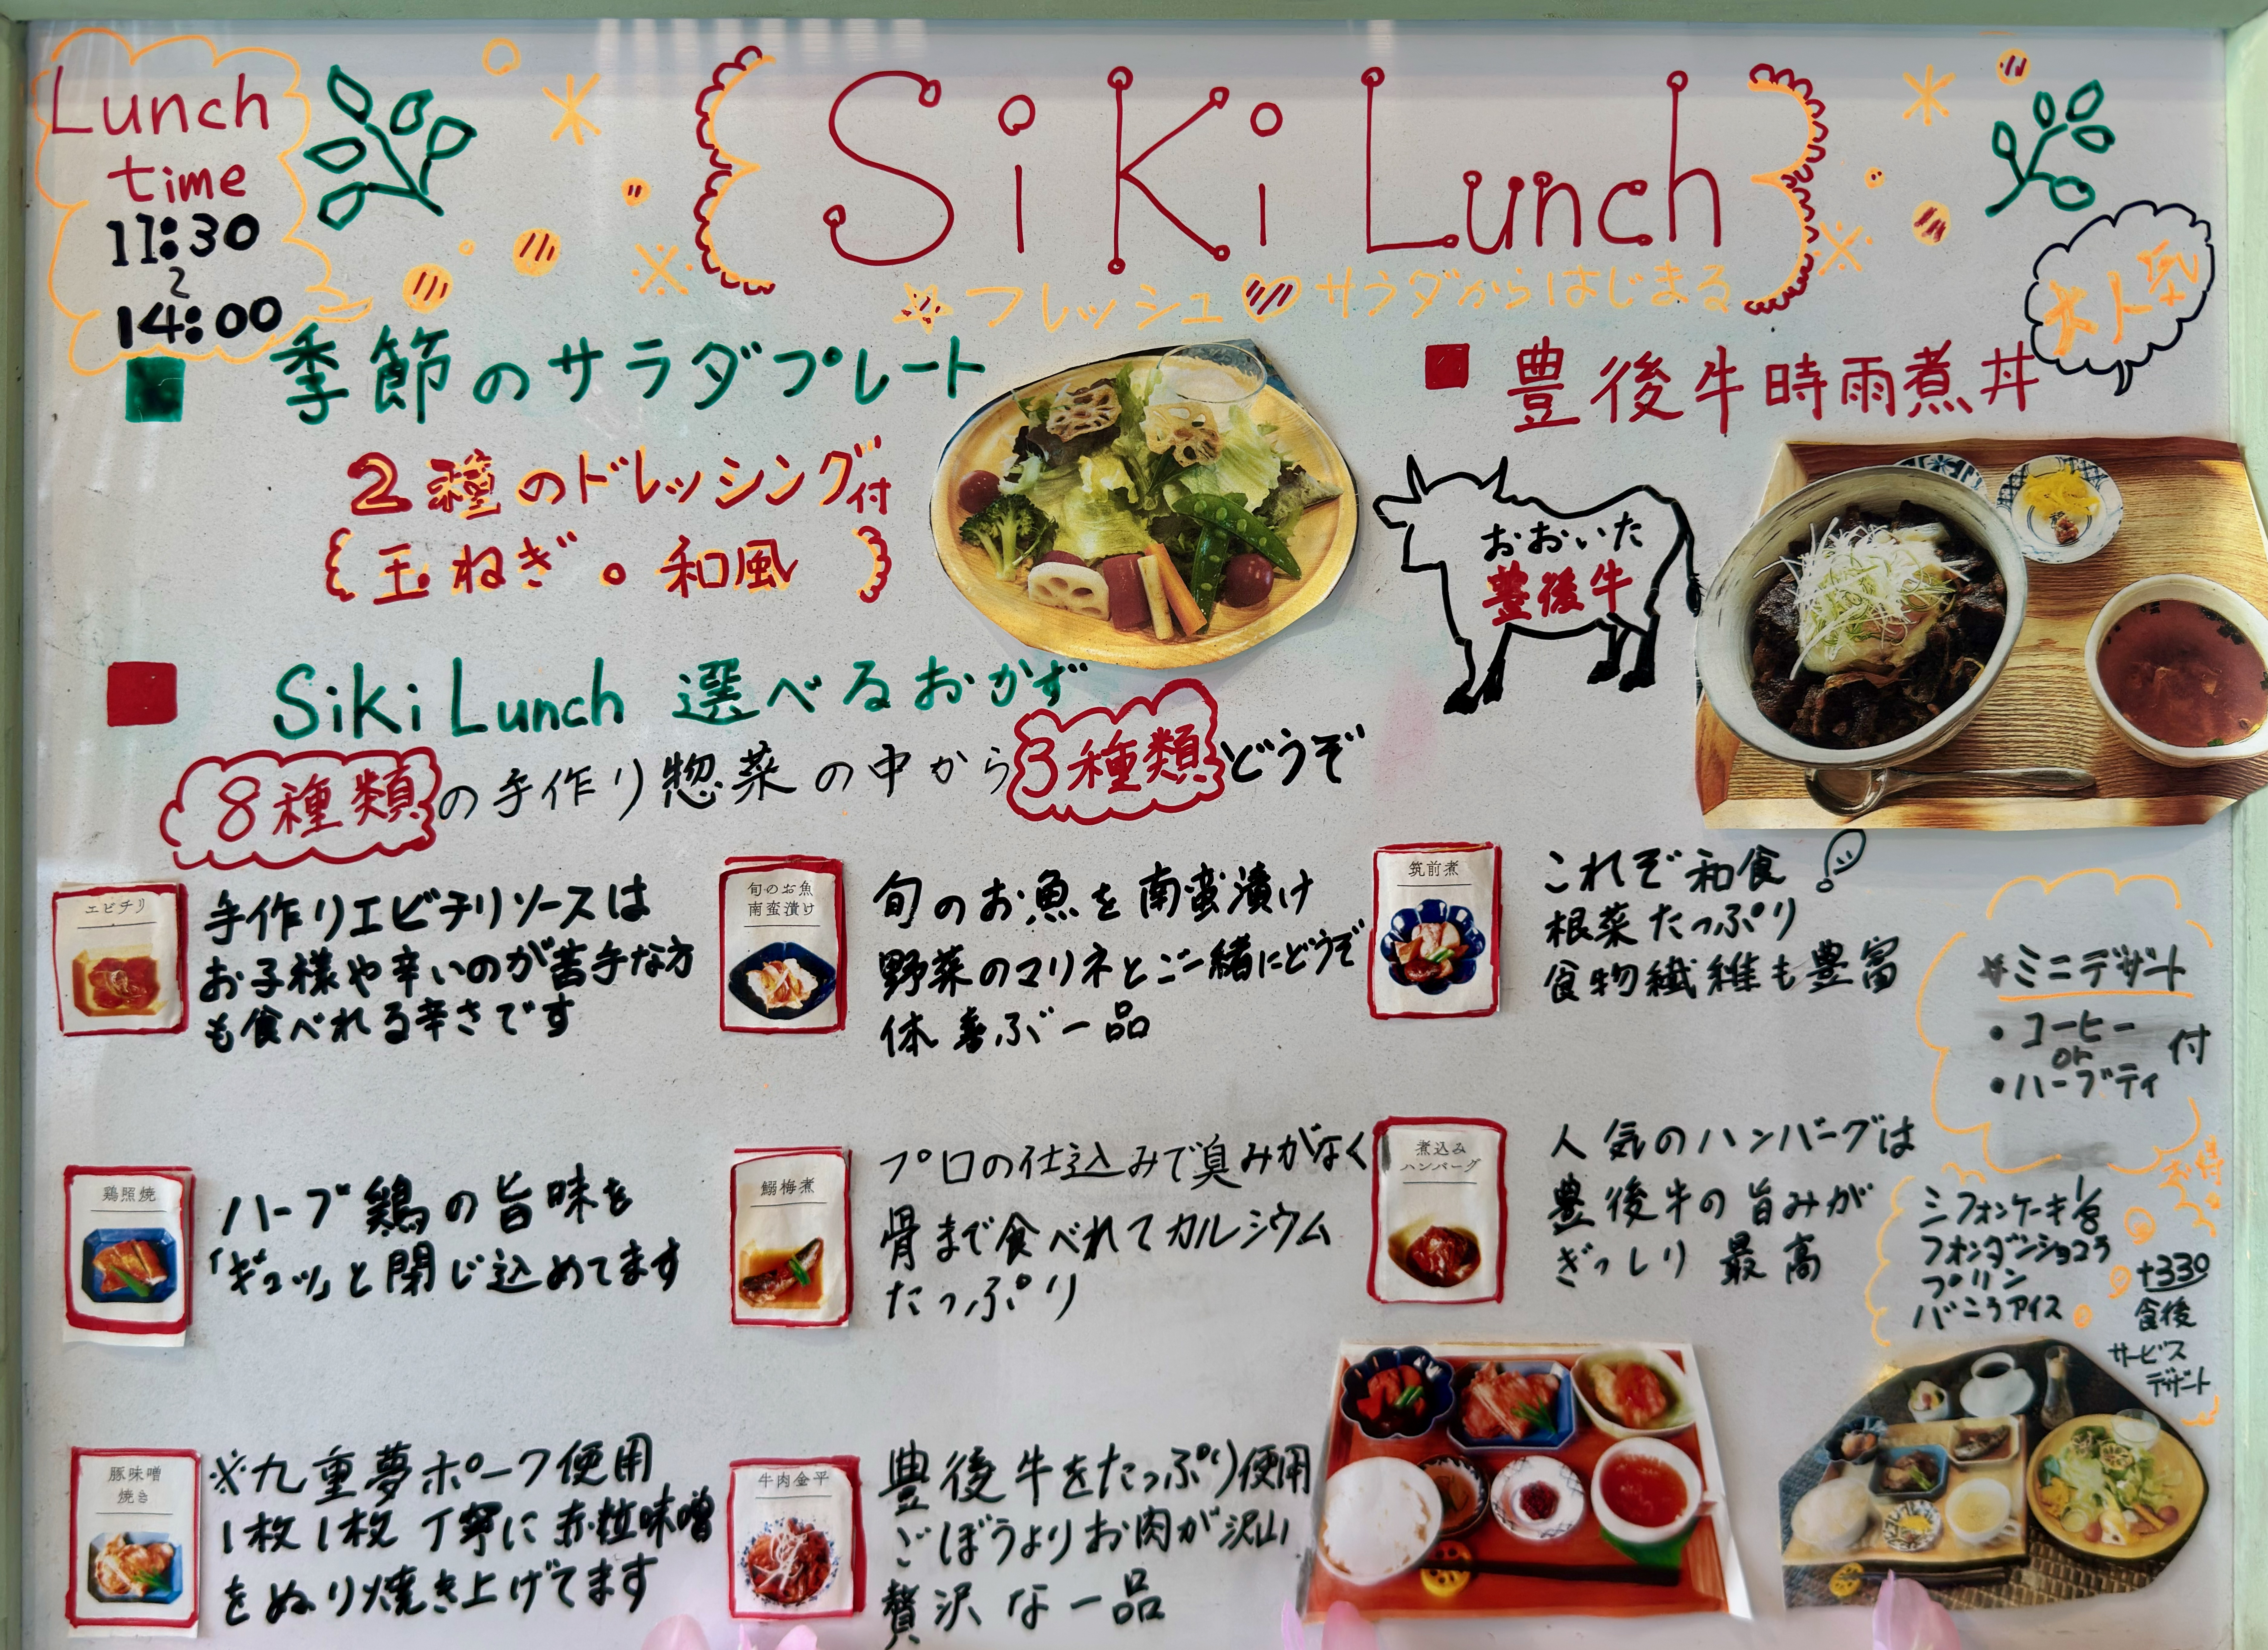 Lunch
time
11:30
〜
14:00
Siki Lunch
フレッシュ サラダからはじまる
季節のサラダプレート
2種のドレッシング付
玉ねぎ。和風
大人気
豊後牛時雨煮丼
おおいた
豊後牛
Siki Lunch 選べるおかず
8種類の手作り惣菜の中から3種類どうぞ
エビチリ
手作りエビチリソースは
お子様や辛いのが苦手な方
も食べれる辛さです
旬のお魚
南蛮漬け
旬のお魚を南蛮漬け
野菜のマリネとご一緒にどうぞ
体喜ぶ一品
筑前煮
これぞ和食!
根菜たっぷり
食物繊維も豊富
ミニデザート
・コーヒー
or
・ハーブティ
付
鶏照焼
ハーブ鶏の旨味を
「ギュッ」と閉じ込めてます
鰯梅煮
プロの仕込みで臭みがなく
骨まで食べれてカルシウム
たっぷり
煮込み
ハンバーグ
人気のハンバーグは
豊後牛の旨みが
ぎっしり 最高
お得
シフォンケーキ
フォンダンショコラ
プリン
バニラアイス
+330
食後
サービス
デザート
豚味噌
焼き
※九重夢ポーク使用
1枚1枚 丁寧に赤粒味噌
をぬり焼き上げてます
牛肉金平
豊後牛をたっぷり使用
ごぼうよりお肉が沢山
贅沢な一品